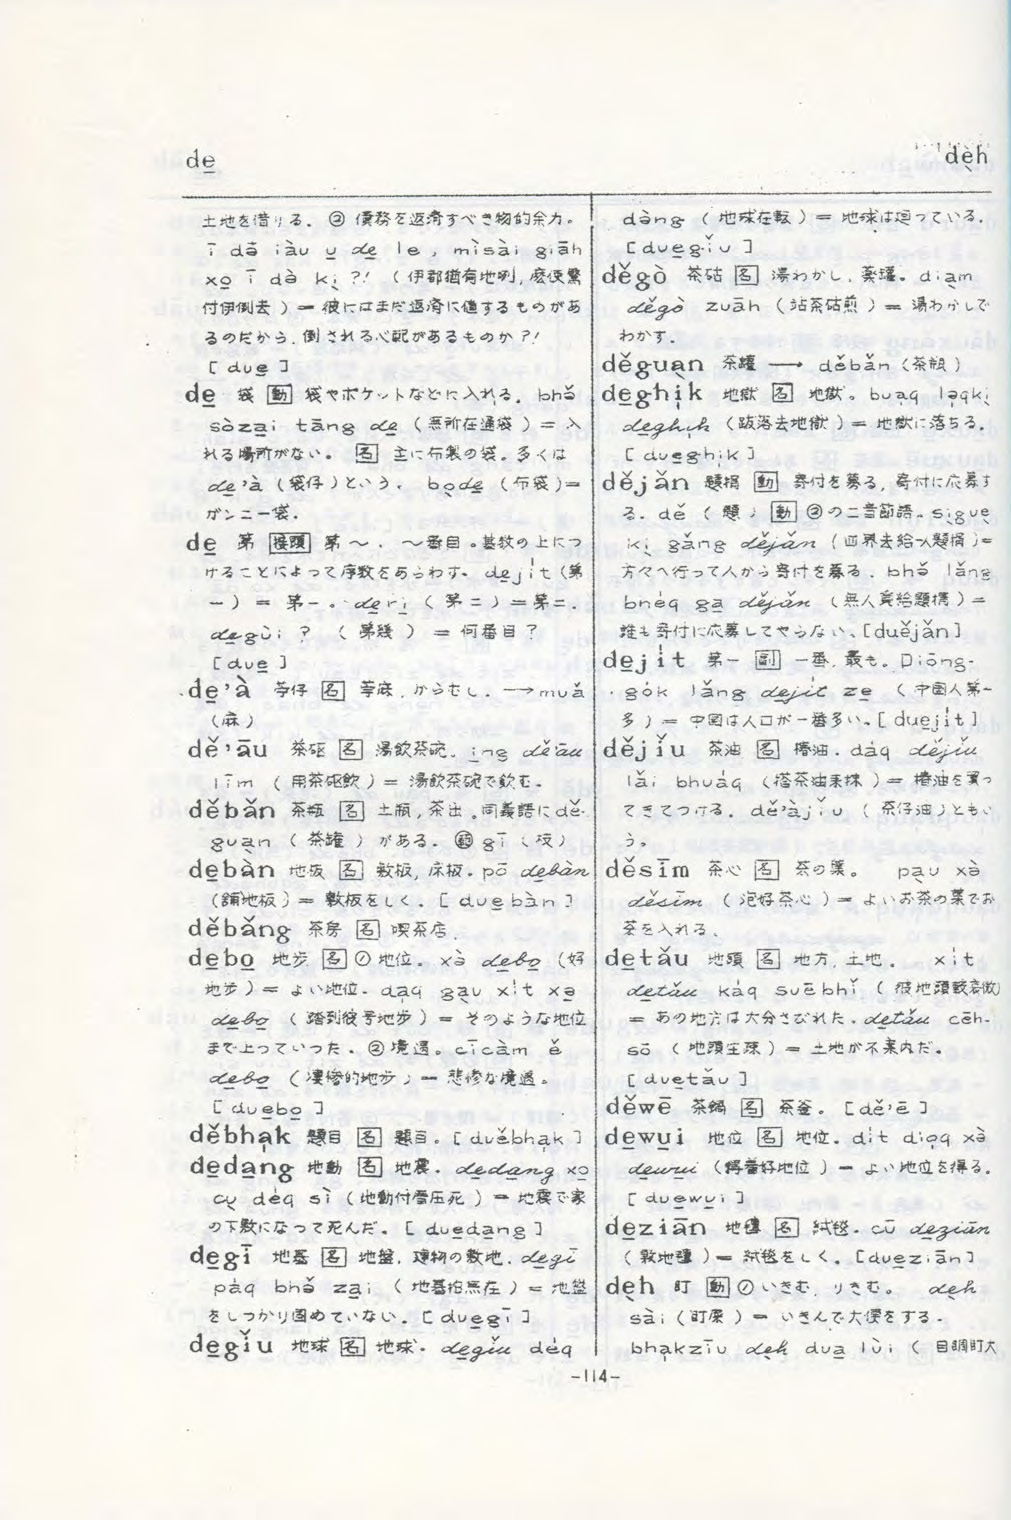 de̲
dẹh
土地を借りる. ② 債務を返済すべき物的余力。
ī dā iàu u̲ de̲ le, mìsài giāh
xo̲ ī dà kị ?! (伊都猶有地咧,麼使驚
付伊倒去) = 彼にはまだ返済に値するものがあ
るのだから, 倒される心配があるものか?!
[ due̲ ]
de̲ 袋 動 袋やポケットなどに入れる. bhǒ
sòza̲i tāng de̲ (無所在通袋) = 入
れる場所がない。 名 主に布製の袋。多くは
de̲'à (袋仔) という. bode̲ (布袋)=
ガンニー袋.
de̲ 第 接頭 第〜. 〜番目。基数の上につ
けることによって序数をあらわす. de̲ji̍t (第
一) = 第一。 de̲ri̲ (第二) = 第二.
de̲gùi ? (第幾) = 何番目?
[ due̲ ]
de̲'à 苧仔 名 苧麻, からむし. → muǎ
(麻)
dě'āu 茶甌 名 湯飲茶碗. i̲ng dě'āu
līm (用茶甌飲) = 湯飲茶碗で飲む.
děbǎn 茶瓶 名 土瓶, 茶出. 同義語に dě-
guan (茶罐) がある. gī (枝)
de̲bàn 地板 名 敷板, 床板. pō de̲bàn
(舗地板) = 敷板をしく. [ due̲bàn ]
děbǎng 茶房 名 喫茶店.
de̲bo̲ 地歩 名 ① 地位. xà de̲bo̲ (好
地歩) = よい地位. dạq gạu xi̍t xə̲
de̲bo̲ (踏到彼号地歩) = そのような地位
まで上っていった. ② 境遇。 cīcàm ě
de̲bo̲ (凄惨的地歩) = 悲惨な境遇。
[ due̲bo̲ ]
děbhạk 題目 名 題目。[ duěbhạk ]
de̲da̲ng 地動 名 地震. de̲da̲ng xo̲
cụ dèq sì (地動付厝圧死) = 地震で家
の下敷になって死んだ. [ due̲da̲ng ]
de̲gī 地基 名 地盤, 建物の敷地. de̲gī
páq bhǒ za̲i (地基拍無在) = 地盤
をしっかり固めていない。[ due̲gī ]
de̲gǐu 地球 名 地球. de̲gǐu déq
dàng (地球在転) = 地球は廻っている.
[ due̲gǐu ]
děgò 茶砧 名 湯わかし, 薬罐。diạm
děgò zuāh (坫茶砧煎) = 湯わかしで
わかす。
děguạn 茶罐 → děbǎn (茶瓶)
de̲ghi̍k 地獄 名 地獄。 buạq lạqkị
de̲ghi̍k (跋落去地獄) = 地獄に落ちる.
[ due̲ghi̍k ]
dějǎn 題捐 動 寄付を募る, 寄付に応募す
る. dě (題) 動 ② の二音節語。 sịgue̲
kị gǎng dějǎn (四界去給人題捐) =
方々へ行って人から寄付を募る. bhǒ lǎng
bhéq gạ dějǎn (無人 給題捐) =
誰も寄付に応募してやらない. [duějǎn]
de̲ji̍t 第一 副 一番, 最も. Diōng-
gók lǎng de̲ji̍t ze̲ (中国人第一
多) = 中国は人口が一番多い。[ due̲ji̍t ]
dějǐu 茶油 名 椿油. dáq dějǐu
lǎi bhuáq (搭茶油来抹) = 椿油を買っ
てきてつける. dě'àjǐu (茶仔油) ともい
う。
děsīm 茶心 名 茶の葉。 pạu xà
děsīm (泡好茶心) = よいお茶の葉でお
茶を入れる.
de̲tǎu 地頭 名 地方, 土地. xi̍t
de̲tǎu káq suēbhǐ (彼地頭較衰微)
= あの地方は大分さびれた. de̲tǎu cēh-
sō (地頭生疎) = 土地が不案内だ。
[ due̲tǎu ]
děwē 茶鍋 名 茶釜。[ dě'ē ]
de̲wu̲i 地位 名 地位. di̍t diọq xà
de̲wu̲i (得着好地位) = よい地位を得る.
[ due̲wu̲i ]
de̲ziān 地氈 名 絨毯. cū de̲ziān
(敷地氈) = 絨毯をしく。[due̲ziān]
dẹh 盯 動 ① いきむ, りきむ。 dẹh
sài (盯屎) = いきんで大便をする.
bhạkzīu dẹh duạ lùi ( 目睭盯大
-114-